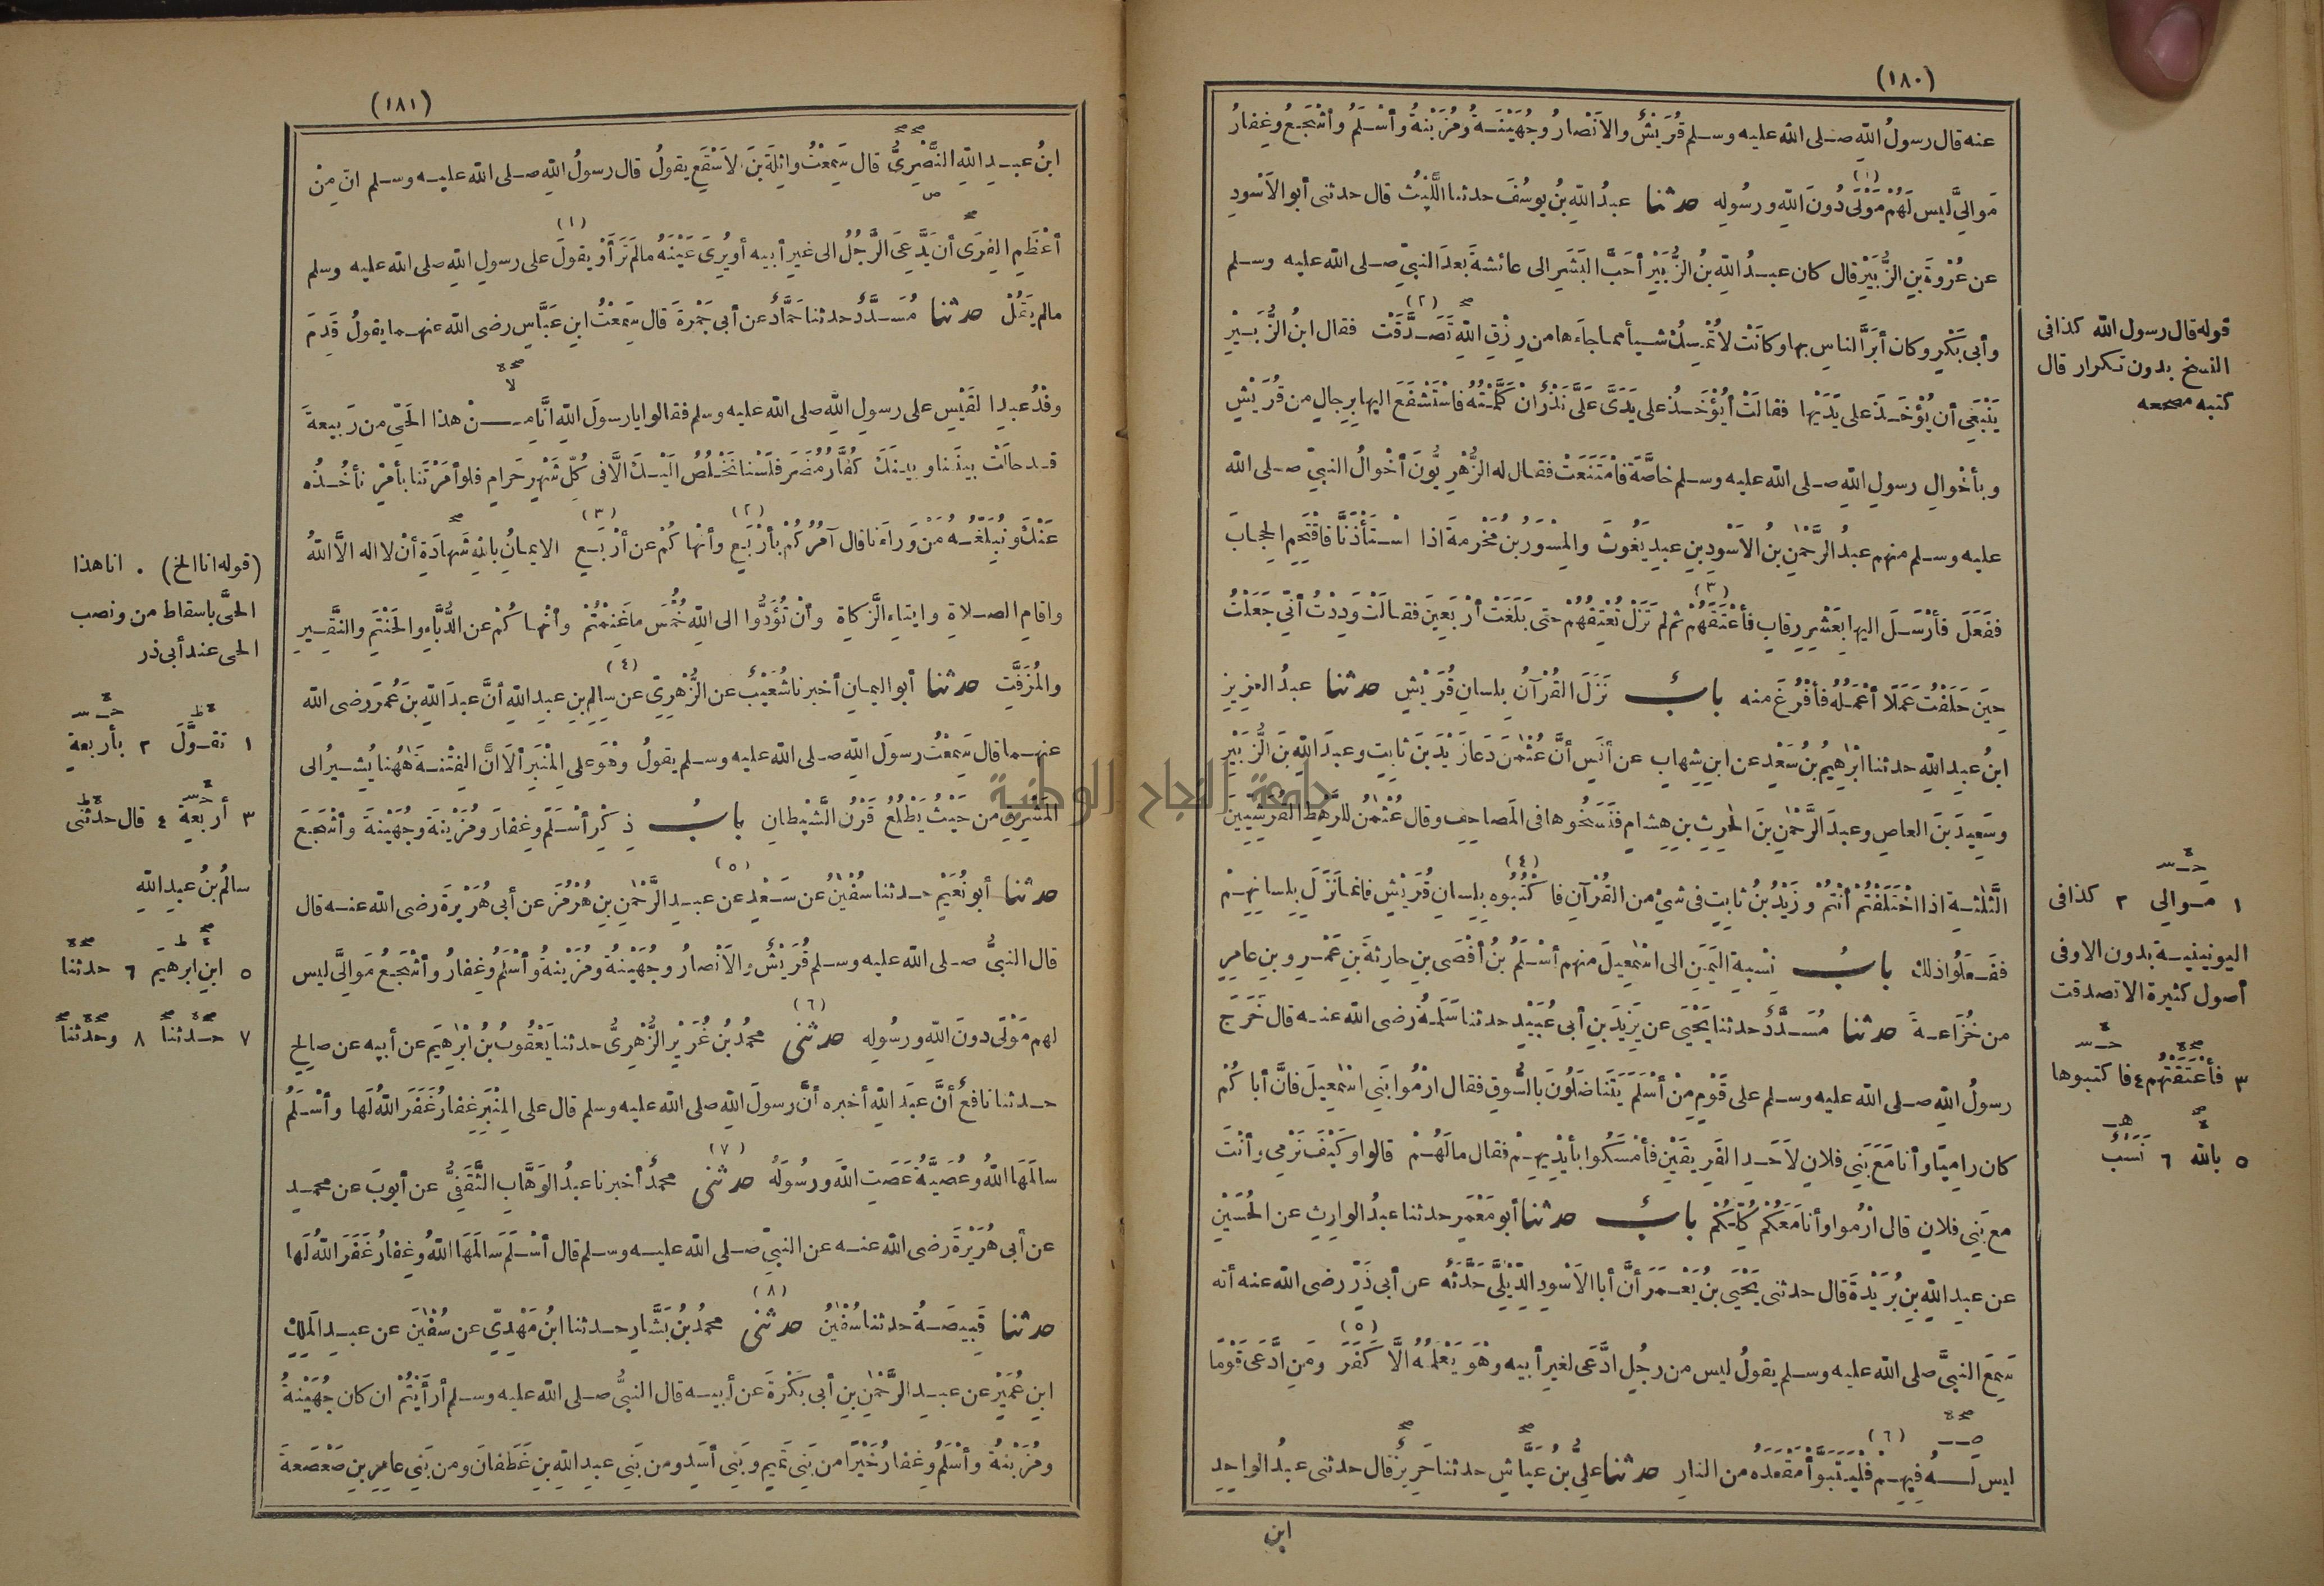 (١٨٠)
عنه قال رسولُ اللهِ صلى الله عليه وسلم قُرَيْشٌ والاَنْصارُ وجُهَيْنَةُ ومُزَيْنةُ وأسْلَمُ وأشْجَعُ وغِفارُ
مَوالِيَّ ليس لَهُمْ مَوْلًى دُونَ اللهِ ورسُولِهِ حدثنا عبدُ اللهِ بنُ يوسُفَ حدثنا اللَّيْثُ قال حدثنى أبو الاَسْودِ
عن عُرْوةَ بنِ الزُّبَيْرِ قال كان عبدُ اللهِ بنُ الزُّبَيْرِ أحَبَّ البَشَرِ الى عائشةَ بعدَ النبيِّ صلى الله عليه وسلم
وأبى بَكْرٍ وكان أبَرَّ الناسِ بها وكانَتْ لاتُمْسِكُ شيأ مما جاءَها من رِزْقِ اللهِ تَصَدَّقَتْ فقال ابنُ الزُّبَيْرِ
يَنْبَغِى أن يُؤْخَذَ على يَدَيْها فقالَتْ أيُؤْخَذُ على يَدَىَّ عَلَىَّ نَذْرٌ انْ كَلَّمْتُهُ فاسْتَشْفَعَ اليها بِرِجالٍ من قُرَيْشٍ
وبأخْوالِ رسولِ اللهِ صلى الله عليه وسلم خاصَّةً فامْتَنَعَتْ فقال له الزُّهْرِيُّونَ أخْوالُ النبيِّ صلى الله
عليه وسلم منهم عبدُ الرَّحْمٰنِ بنُ الاَسْوَدِ بنِ عبدِ يَغُوثَ والمِسْوَرُ بنُ مَخْرمةَ اذا اسْتَأْذَنَّا فاقْتَحِمِ الحِجابَ
ففَعَلَ فأرْسَلَ اليها بعَشْرِ رِقابٍ فأَعْتَقَهُمْ ثم لم تَزَلْ تُعْتِقُهُمْ حتى بَلَغَتْ أرْبَعِينَ فقالَتْ وَدِدْتُ أنّى جَعَلْتُ
حِينَ حَلَفْتُ عَمَلًا أعْمَلُهُ فأَفْرُغَ منه بابٌ نَزَلَ القُرْآنُ بلسانِ قُرَيْشٍ حدثنا عبدُ العزِيزِ
ابنُ عبدِ اللهِ حدثنا ابْرٰهِيمُ بنُ سَعْدٍ عن ابنِ شِهابٍ عن أنَسٍ أنَّ عُثْمٰنَ دَعا زَيْدَ بنَ ثابِتٍ وعبدَ اللهِ بنَ الزُّبَيْرِ
وسَعِيدَ بنَ العاصِ وعبدَ الرَّحْمٰنِ بنَ الحٰرِثِ بنِ هِشامٍ فنَسَخُوها فى المَصاحِفِ وقال عُثْمٰنُ للرَّهْطِ القُرَشِيِّينَ
الثَّلٰثةِ اذا اخْتَلَفْتُمْ أنْتُمْ وزَيْدُ بنُ ثابِتٍ فى شئٍ من القُرْآنِ فاكْتُبُوه بِلِسانِ قُرَيْشٍ فانما نَزَلَ بِلِسانِهِمْ
ففَعَلُوا ذلك بابُ نِسْبةِ اليَمَنِ الى اسْمٰعِيلَ منهم أسْلَمُ بنُ أَفْصَى بنِ حارِثةَ بنِ عَمْرِو بنِ عامِرٍ
من خُزَاعةَ حدثنا مُسَدَّدٌ حدثنا يَحْيَى عن يَزِيدَ بنِ أبى عُبَيْدٍ حدثنا سَلَمةُ رضى الله عنه قال خَرَجَ
رسولُ اللهِ صلى الله عليه وسلم على قَوْمٍ مِنْ أسْلَمَ يَتَناضَلُونَ بالسُّوقِ فقال ارْمُوا بَنِى اسْمٰعِيلَ فانَّ أباكُمْ
كان رامِيًا وأنا مَعَ بَنِى فلانٍ لاَحَدِ الفَرِيقَيْنِ فأمْسَكُوا بأيْدِيهِمْ فقال مالَهُمْ قالوا وكَيْفَ نَرْمِى وأنْتَ
مع بَنِى فلانٍ قال ارْمُوا وأنا مَعَكُمْ كُلِّكُمْ بابٌ حدثنا أبو مَعْمَرٍ حدثنا عبدُ الوارِثِ عن الحُسَيْنِ
عن عبدِ اللهِ بنِ بُرَيْدةَ قال حدثنى يَحْيَى بنُ يَعْمَرَ أنَّ أبا الاَسْودِ الدِّيْلِىَّ حَدَّثَهُ عن أبى ذَرٍّ رضى الله عنه أنه
سَمِعَ النبىَّ صلى الله عليه وسلم يقولُ ليس من رجُلٍ ادَّعَى لغيرِ أبيهِ وهْوَ يَعْلَمُهُ الَّا كَفَرَ ومَنِ ادَّعَى قَوْمًا
ليس لَهُ فِيهِمْ فَلْيَتَبَوَّأْ مَقْعَدَهُ من النارِ حدثنا علىُّ بنُ عَيَّاشٍ حدثنا حَرِيزٌ قال حدثنى عبدُ الواحِدِ
ابن
قوله قال رسول الله كذا فى
النسخ بدون تكرار قال
كتبه مصححه
١ موالى ٢ كذا فى
اليونينية بدون الا وفى
أصول كثيرة الا تصدقت
٣ فأعْتَقَتْهُم ٤ فاكتبوها
٥ بالله ٦ نَسَبٌ
(١٨١)
ابنُ عبدِ اللهِ النَّصْرِىُّ قال سَمِعْتُ واثِلَةَ بنَ الاَسْقَعِ يقولُ قال رسولُ اللهِ صلى الله عليه وسلم انّ مِنْ
أعْظَمِ الفِرَى أن يَدَّعِىَ الرَّجُلُ الى غيرِ أبيه أو يُرِىَ عَيْنَهُ مالم تَرَ أَوْ يقولَ على رسولِ اللهِ صلى الله عليه وسلم
مالم يَقُلْ حدثنا مُسَدَّدٌ حدثنا حَمَّادٌ عن أبى جَمْرةَ قال سَمِعْتُ ابنَ عَبَّاسٍ رضى الله عنهما يقولُ قَدِمَ
وفْدُ عبدِ القَيْسِ على رسولِ اللهِ صلى الله عليه وسلم فقالوا يا رسولَ اللهِ انَّا مِنْ هذا الحَىِّ من رَبِيعةَ
قد حالَتْ بينَنا وبينَكَ كُفَّارُ مُضَرَ فلَسْنا نَخْلُصُ الَيْكَ الَّا فى كُلِّ شَهْرٍ حَرامٍ فلو أمَرْتَنا بأمْرٍ نأخُذُه
عَنْكَ ونُبَلِّغُهُ مَنْ وَراءَنا قال آمُرُكُمْ بأرْبَعٍ وأنْهاكُمْ عن أرْبَعٍ الايمانِ باللهِ شَهادَةِ أنْ لا اله الَّا اللهُ
واقامِ الصلاةِ وايتاءِ الزَّكاةِ وأنْ تُؤَدُّوا الى اللهِ خُمْسَ ما غَنِمْتُمْ وأنْهاكُمْ عن الدُّبَّاءِ والحَنْتَمِ والنَّقِيرِ
والمُزَفَّتِ حدثنا أبو اليمانِ أخبرنا شُعَيْبٌ عن الزُّهْرِىِّ عن سالِمِ بنِ عبدِ اللهِ أنَّ عبدَ اللهِ بنَ عُمَرَ رضى الله
عنهما قال سَمِعْتُ رسولَ اللهِ صلى الله عليه وسلم يقولُ وهْوَ على المِنْبَرِ ألَا انَّ الفِتْنةَ هٰهُنا يُشِيرُ الى
المَشْرِقِ من حَيْثُ يَطْلُعُ قَرْنُ الشَّيْطانِ بابُ ذِكْرِ أسْلَمَ وغِفارَ ومُزَيْنةَ وجُهَيْنةَ وأشْجَعَ
حدثنا أبو نُعَيْمٍ حدثنا سُفْيٰنُ عن سَعْدٍ عن عبدِ الرَّحْمٰنِ بنِ هُرْمُزَ عن أبى هُرَيْرةَ رضى الله عنه قال
قال النبىُّ صلى الله عليه وسلم قُرَيْشٌ والاَنْصارُ وجُهَيْنةُ ومُزَيْنةُ وأسْلَمُ وغِفارُ وأشْجَعُ مَوالِىَّ ليس
لهم مَوْلًى دونَ اللهِ ورسُولِهِ حدثنى محمدُ بنُ غُرَيْرٍ الزُّهْرِىُّ حدثنا يَعْقُوبُ بنُ ابْرٰهِيمَ عن أبيهِ عن صالحٍ
حدثنا نافعٌ أنَّ عبدَ اللهِ أخبره أنَّ رسولَ اللهِ صلى الله عليه وسلم قال على المِنْبَرِ غِفارُ غَفَرَ اللهُ لَها وأسْلَمُ
سالَمَها اللهُ وعُصَيَّةُ عَصَتِ اللهَ ورسُولَهُ حدثنى محمدٌ أخبرنا عبدُ الوَهَّابِ الثَّقَفِىُّ عن أيوبَ عن محمدٍ
عن أبى هُرَيْرةَ رضى الله عنه عن النبىِّ صلى الله عليه وسلم قال أسْلَمُ سالَمَها اللهُ وغِفارُ غَفَرَ اللهُ لَها
حدثنا قَبِيصَةُ حدثنا سُفْيٰنُ حدثنى محمدُ بنُ بَشَّارٍ حدثنا ابنُ مَهْدِىٍّ عن سُفْيٰنَ عن عبدِ المَلِكِ
ابنِ عُمَيْرٍ عن عبدِ الرَّحْمٰنِ بنِ أبى بَكْرةَ عن أبيهِ قال النبىُّ صلى الله عليه وسلم أرأَيْتُمْ ان كان جُهَيْنةُ
ومُزَيْنةُ وأسْلَمُ وغِفارُ خَيْرًا من بَنِى تَمِيمٍ وبَنِى أسَدٍ ومن بَنِى عبدِ اللهِ بنِ غَطَفانَ ومن بَنِى عامِرِ بنِ صَعْصَعةَ
(قوله انا الخ) . انا هذا
الحىَّ باسقاط من ونصب
الحى عند أبى ذر
١ تقوَّلَ ٢ بأربعةٍ
٣ أربعةٍ ٤ قال حدثنى
سالمُ بنُ عبدِ اللهِ
٥ ابنِ ابرهيمَ ٦ حدثنا
٧ حدثنا ٨ وحدثنا
جامعة النجاح الوطنية